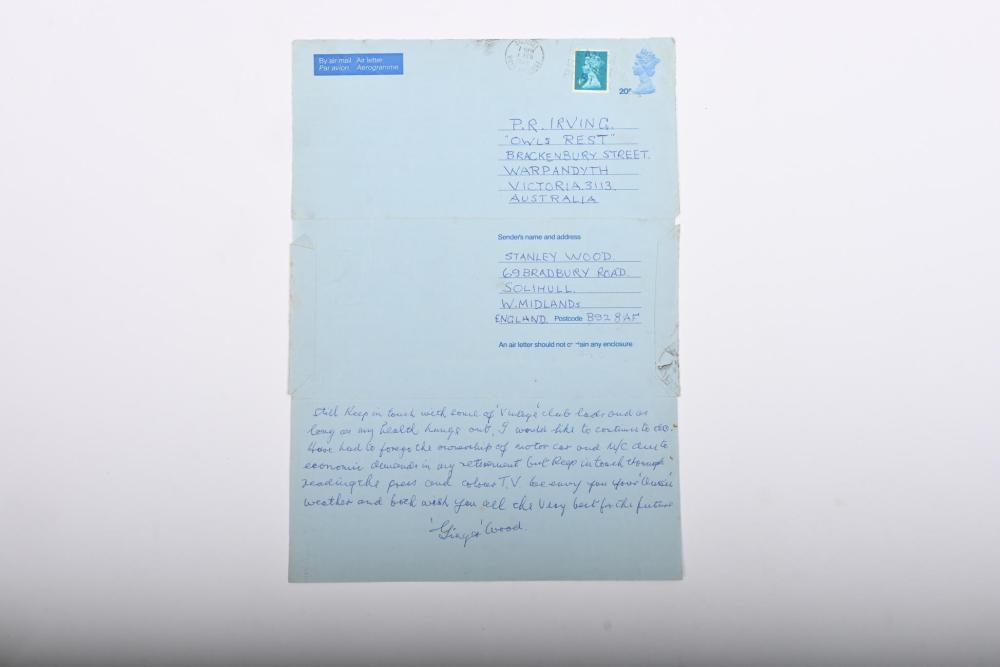 By air mail Air letter
Par avion Aerogramme
20P
P.R. IRVING.
"OWLS REST"
BRACKENBURY STREET.
WARPANDYTH
VICTORIA. 3113.
AUSTRALIA
Sender's name and address
STANLEY WOOD.
69 BRADBURY ROAD.
SOLIHULL.
W. MIDLANDS
ENGLAND. Postcode B92 8AF
An air letter should not contain any enclosure
Still keep in touch with some of 'Vintage' club lads and as
long as my health hangs out, I would like to continue to do.
Have had to forego the ownership of motor car and M/C due to
economic demands in my retirement but keep in touch through
reading the press and colour T.V. We envy you your 'Aussie'
weather and both wish you all the very best for the future
'Ginger' Wood.